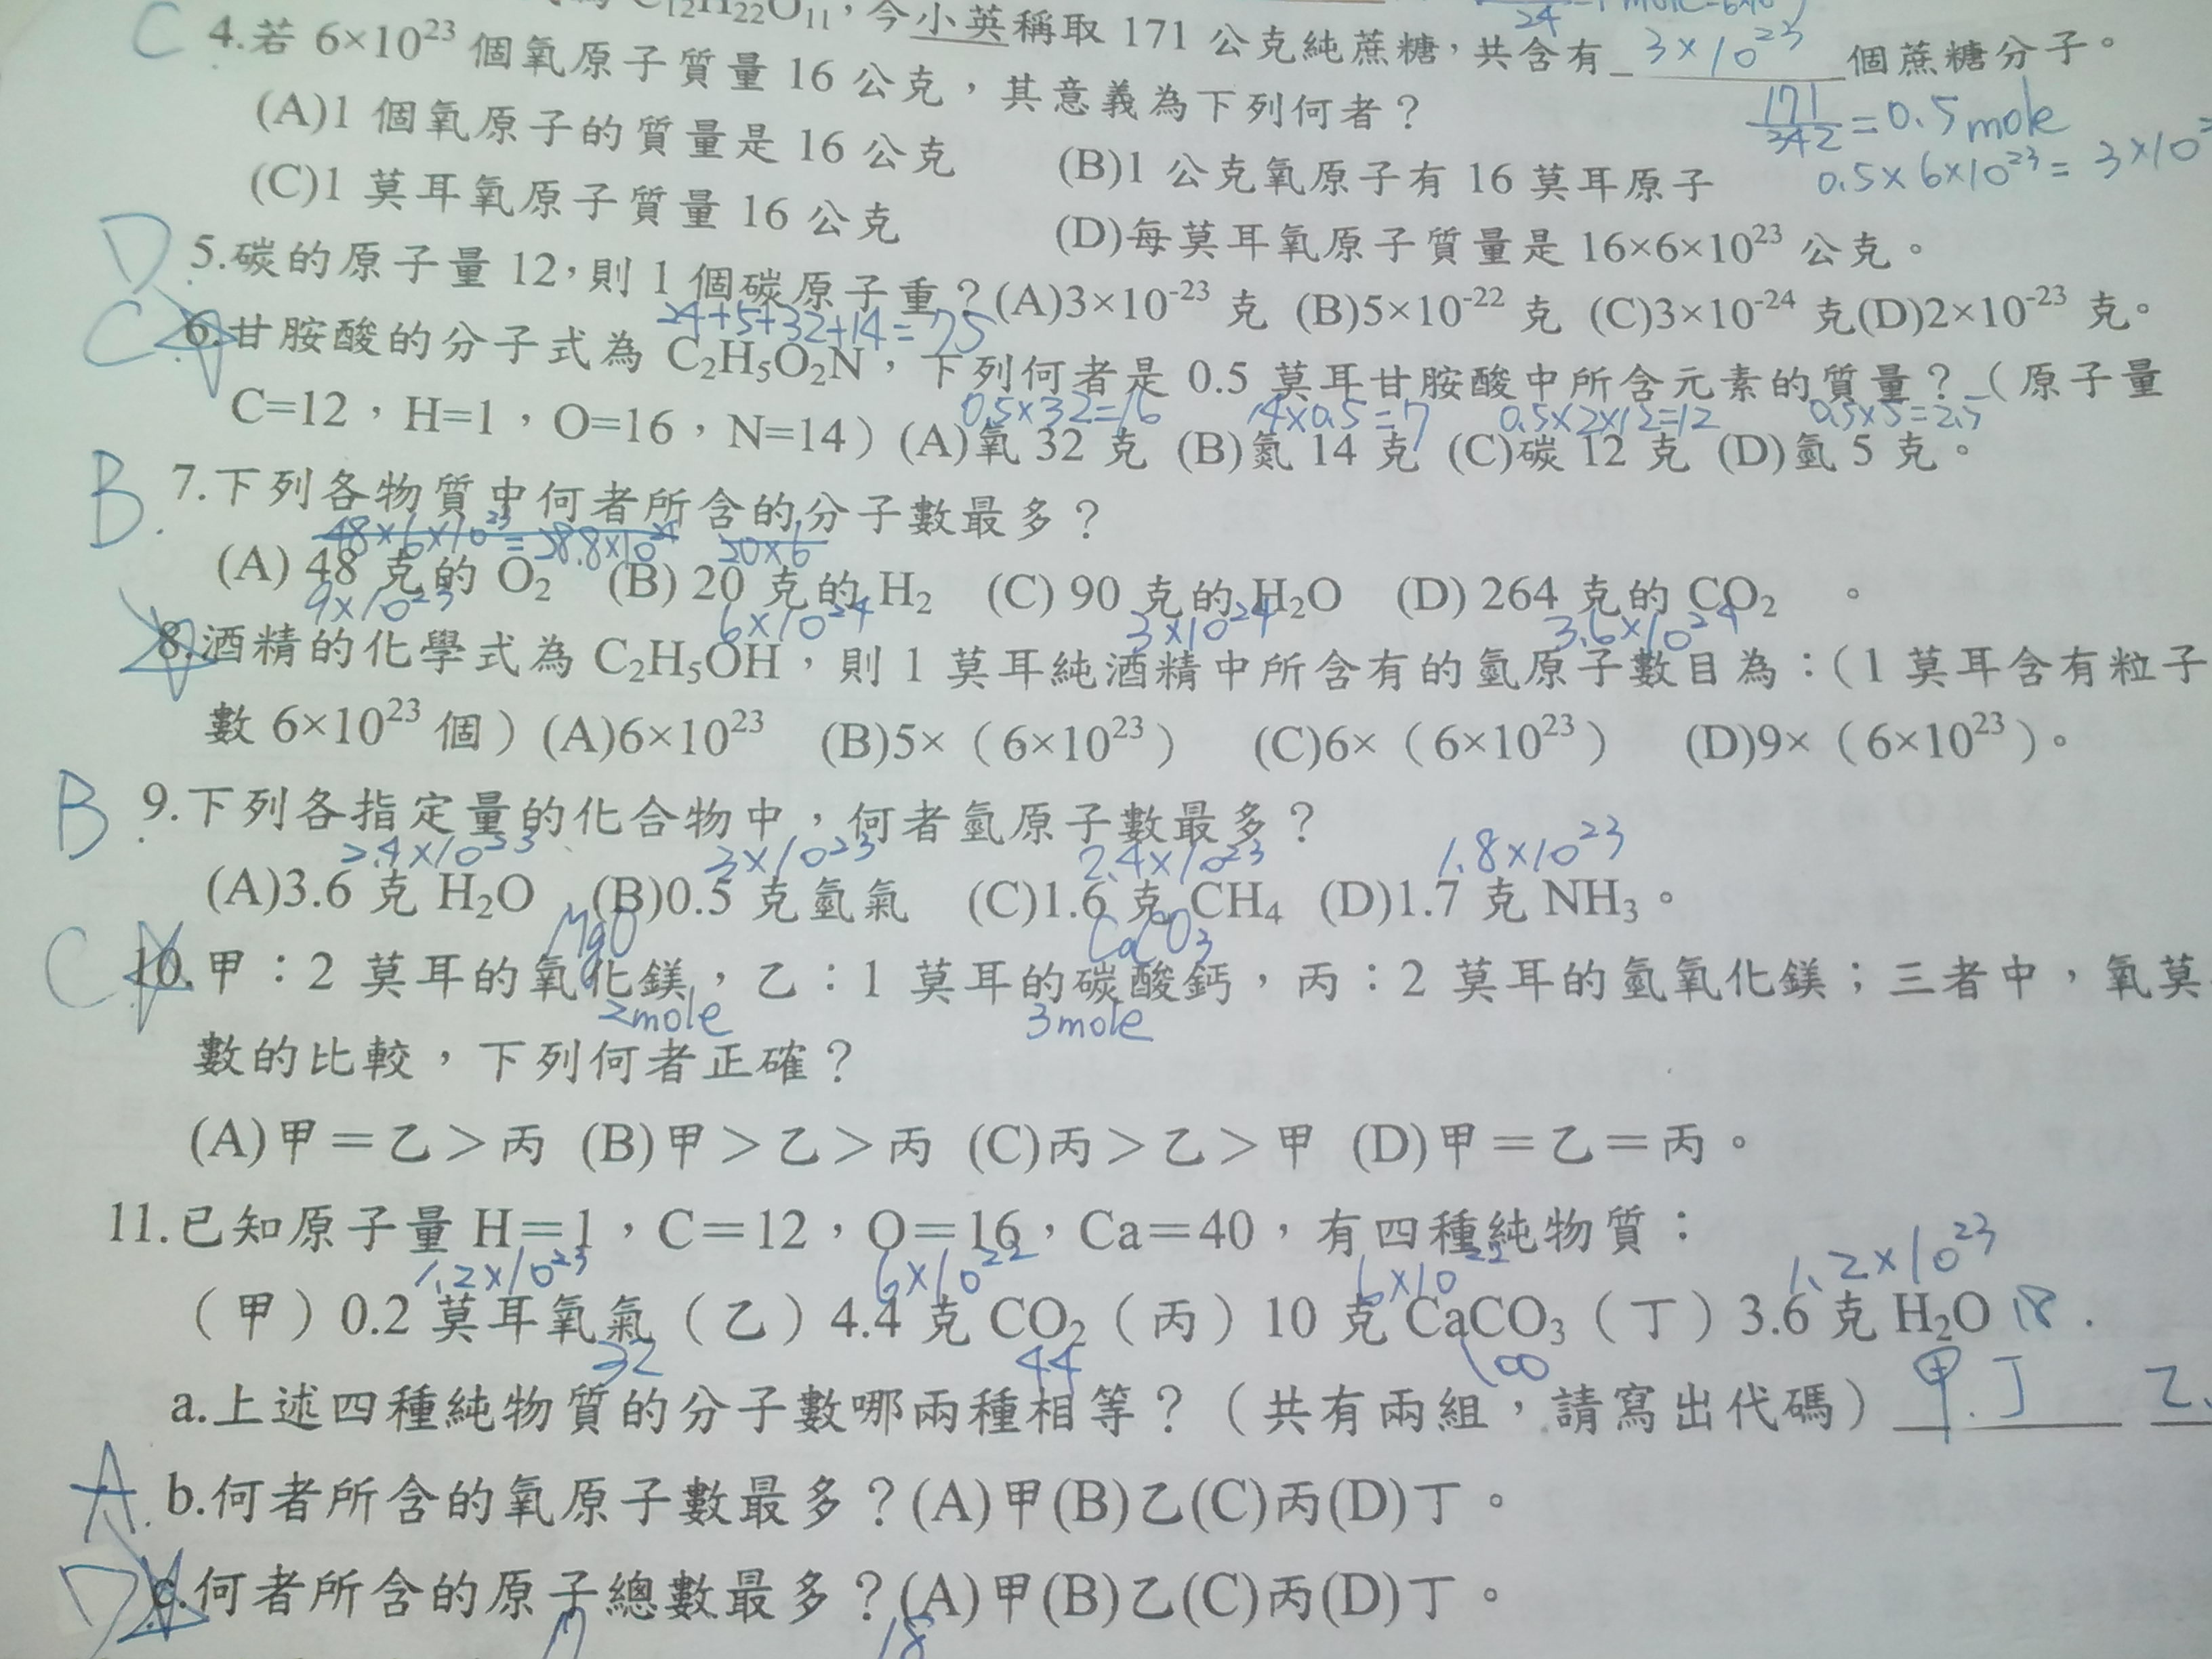 C₁₂H₂₂O₁₁，今小英稱取 171 公克純蔗糖，共含有 3×10²³ 個蔗糖分子。
171/342=0.5mole
0.5×6×10²³=3×10
C 4.若 6×10²³ 個氧原子質量 16 公克，其意義為下列何者？
(A)1 個氧原子的質量是 16 公克 (B)1 公克氧原子有 16 莫耳原子
(C)1 莫耳氧原子質量 16 公克 (D)每莫耳氧原子質量是 16×6×10²³ 公克。
D 5.碳的原子量 12，則 1 個碳原子重？(A)3×10⁻²³ 克 (B)5×10⁻²² 克 (C)3×10⁻²⁴ 克(D)2×10⁻²³ 克。
24+5+32+14=75
C 6.甘胺酸的分子式為 C₂H₅O₂N，下列何者是 0.5 莫耳甘胺酸中所含元素的質量？（原子量
0.5×32=16 14×0.5=7 0.5×2×12=12 0.5×5=2.5
C=12，H=1，O=16，N=14）(A)氧 32 克 (B)氮 14 克 (C)碳 12 克 (D)氫 5 克。
B 7.下列各物質中何者所含的分子數最多？
48×6×10²³=28.8×10²⁴ 20×6
(A) 48 克的 O₂ (B) 20 克的 H₂ (C) 90 克的 H₂O (D) 264 克的 CO₂ 。
9×10²³ 6×10²⁴ 3×10²⁴ 3.6×10²⁴
8.酒精的化學式為 C₂H₅OH，則 1 莫耳純酒精中所含有的氫原子數目為：（1 莫耳含有粒子
數 6×10²³ 個）(A)6×10²³ (B)5×（6×10²³） (C)6×（6×10²³） (D)9×（6×10²³）。
B 9.下列各指定量的化合物中，何者氫原子數最多？
2.4×10²³ 3×10²³ 2.4×10²³ 1.8×10²³
(A)3.6 克 H₂O (B)0.5 克氫氣 (C)1.6 克 CH₄ (D)1.7 克 NH₃。
MgO CaCO₃
C 10.甲：2 莫耳的氧化鎂，乙：1 莫耳的碳酸鈣，丙：2 莫耳的氫氧化鎂；三者中，氧莫
2mole 3mole
數的比較，下列何者正確？
(A)甲＝乙＞丙 (B)甲＞乙＞丙 (C)丙＞乙＞甲 (D)甲＝乙＝丙。
11.已知原子量 H＝1，C＝12，O＝16，Ca＝40，有四種純物質：
1.2×10²³ 6×10²² 6×10²² 1.2×10²³
（甲）0.2 莫耳氧氣（乙）4.4 克 CO₂（丙）10 克 CaCO₃（丁）3.6 克 H₂O 18.
32 44 100
a.上述四種純物質的分子數哪兩種相等？（共有兩組，請寫出代碼）甲.丁 乙.
A b.何者所含的氧原子數最多？(A)甲(B)乙(C)丙(D)丁。
D c.何者所含的原子總數最多？(A)甲(B)乙(C)丙(D)丁。
18